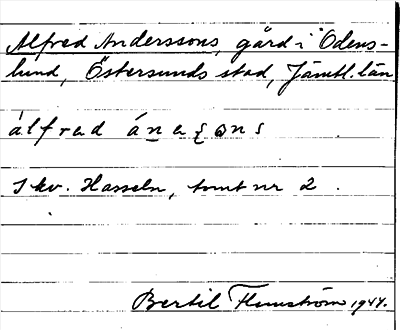 Alfred Anderssons, gård i Odens-
lund, Östersunds stad, Jämtl. län
álfrad ánaʂo̱ns
I kv. Hasseln, tomt nr 2.
Bertil Flemström 1944.